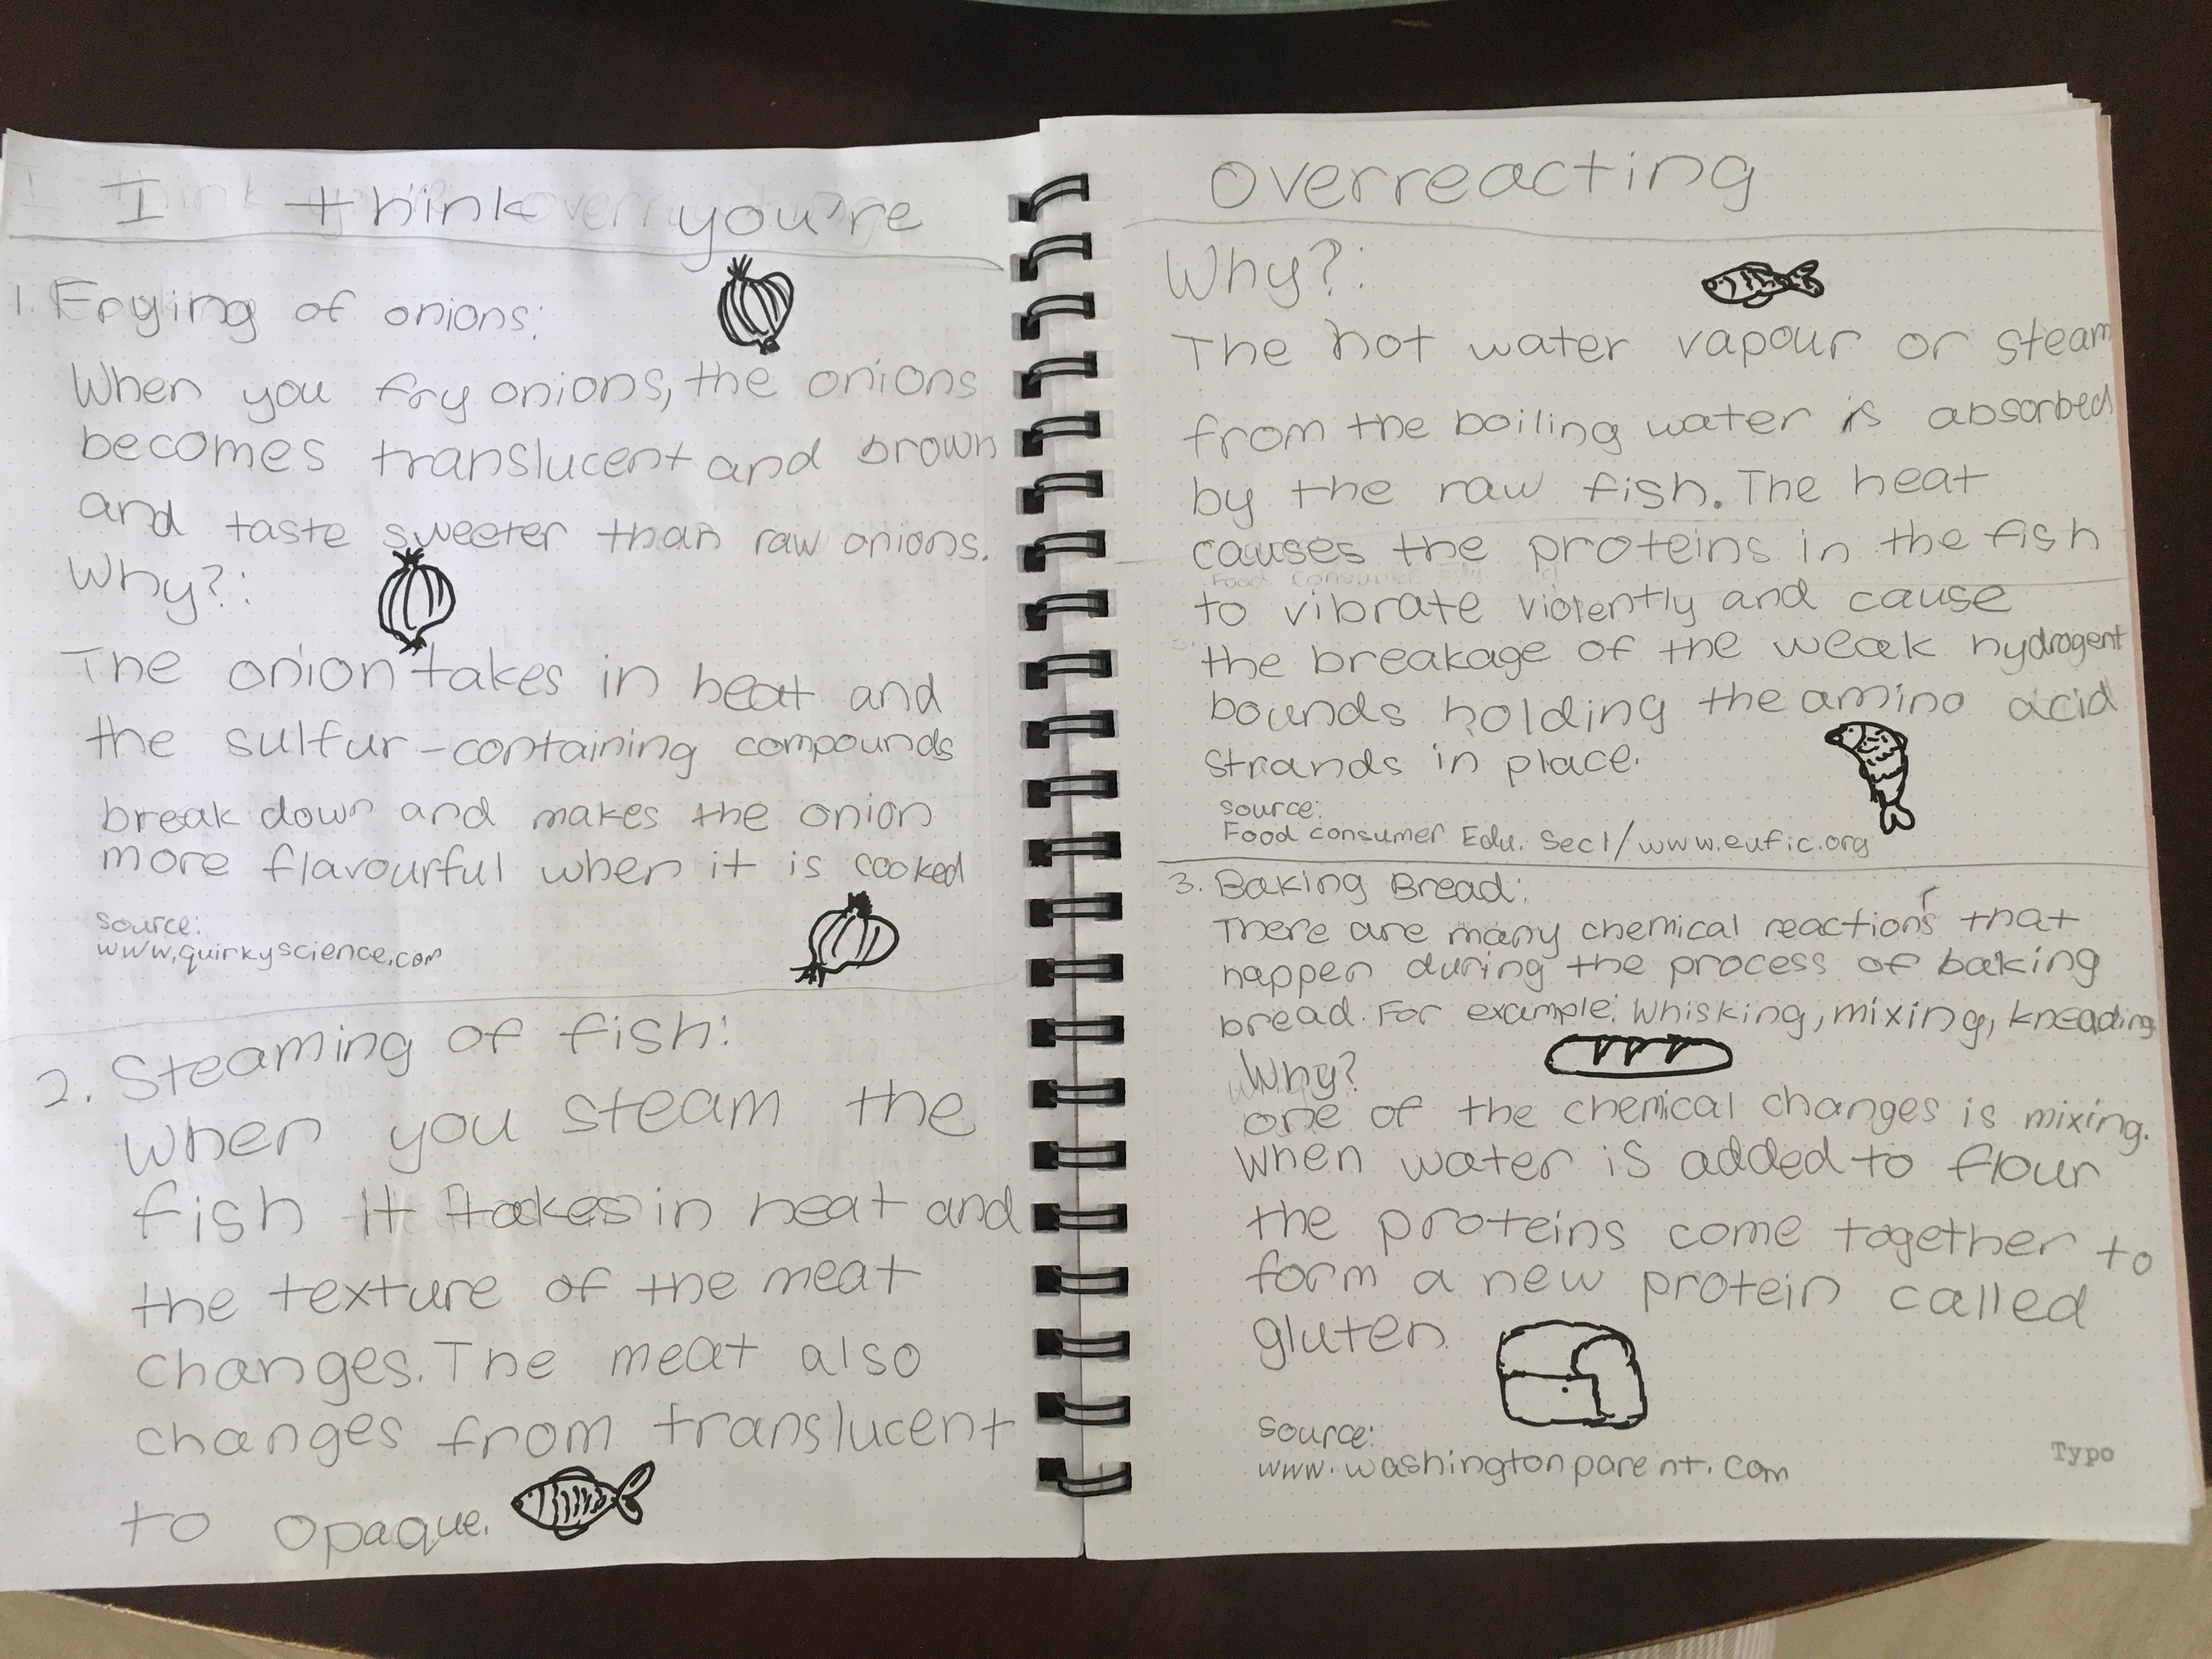 I think you're
1. Frying of onions:
When you fry onions, the onions
becomes translucent and brown
and taste sweeter than raw onions.
Why?:
The onion takes in heat and
the sulfur-containing compounds
break down and makes the onion
more flavourful when it is cooked
source:
www.quirkyscience.com
2. Steaming of fish:
When you steam the
fish It takes in heat and
the texture of the meat
changes. The meat also
changes from translucent
to opaque.
overreacting
Why?:
The hot water vapour or steam
from the boiling water is absorbed
by the raw fish. The heat
causes the proteins in the fish
to vibrate violently and cause
the breakage of the weak hydrogent
bounds holding the amino acid
strands in place.
source:
Food consumer Edu. Sec1/www.eufic.org
3. Baking Bread:
There are many chemical reactions that
happen during the process of baking
bread. For example: Whisking, mixing, kneading
Why?
one of the chemical changes is mixing.
When water is added to flour
the proteins come together to
form a new protein called
gluten.
source:
www.washingtonparent.com
Typo